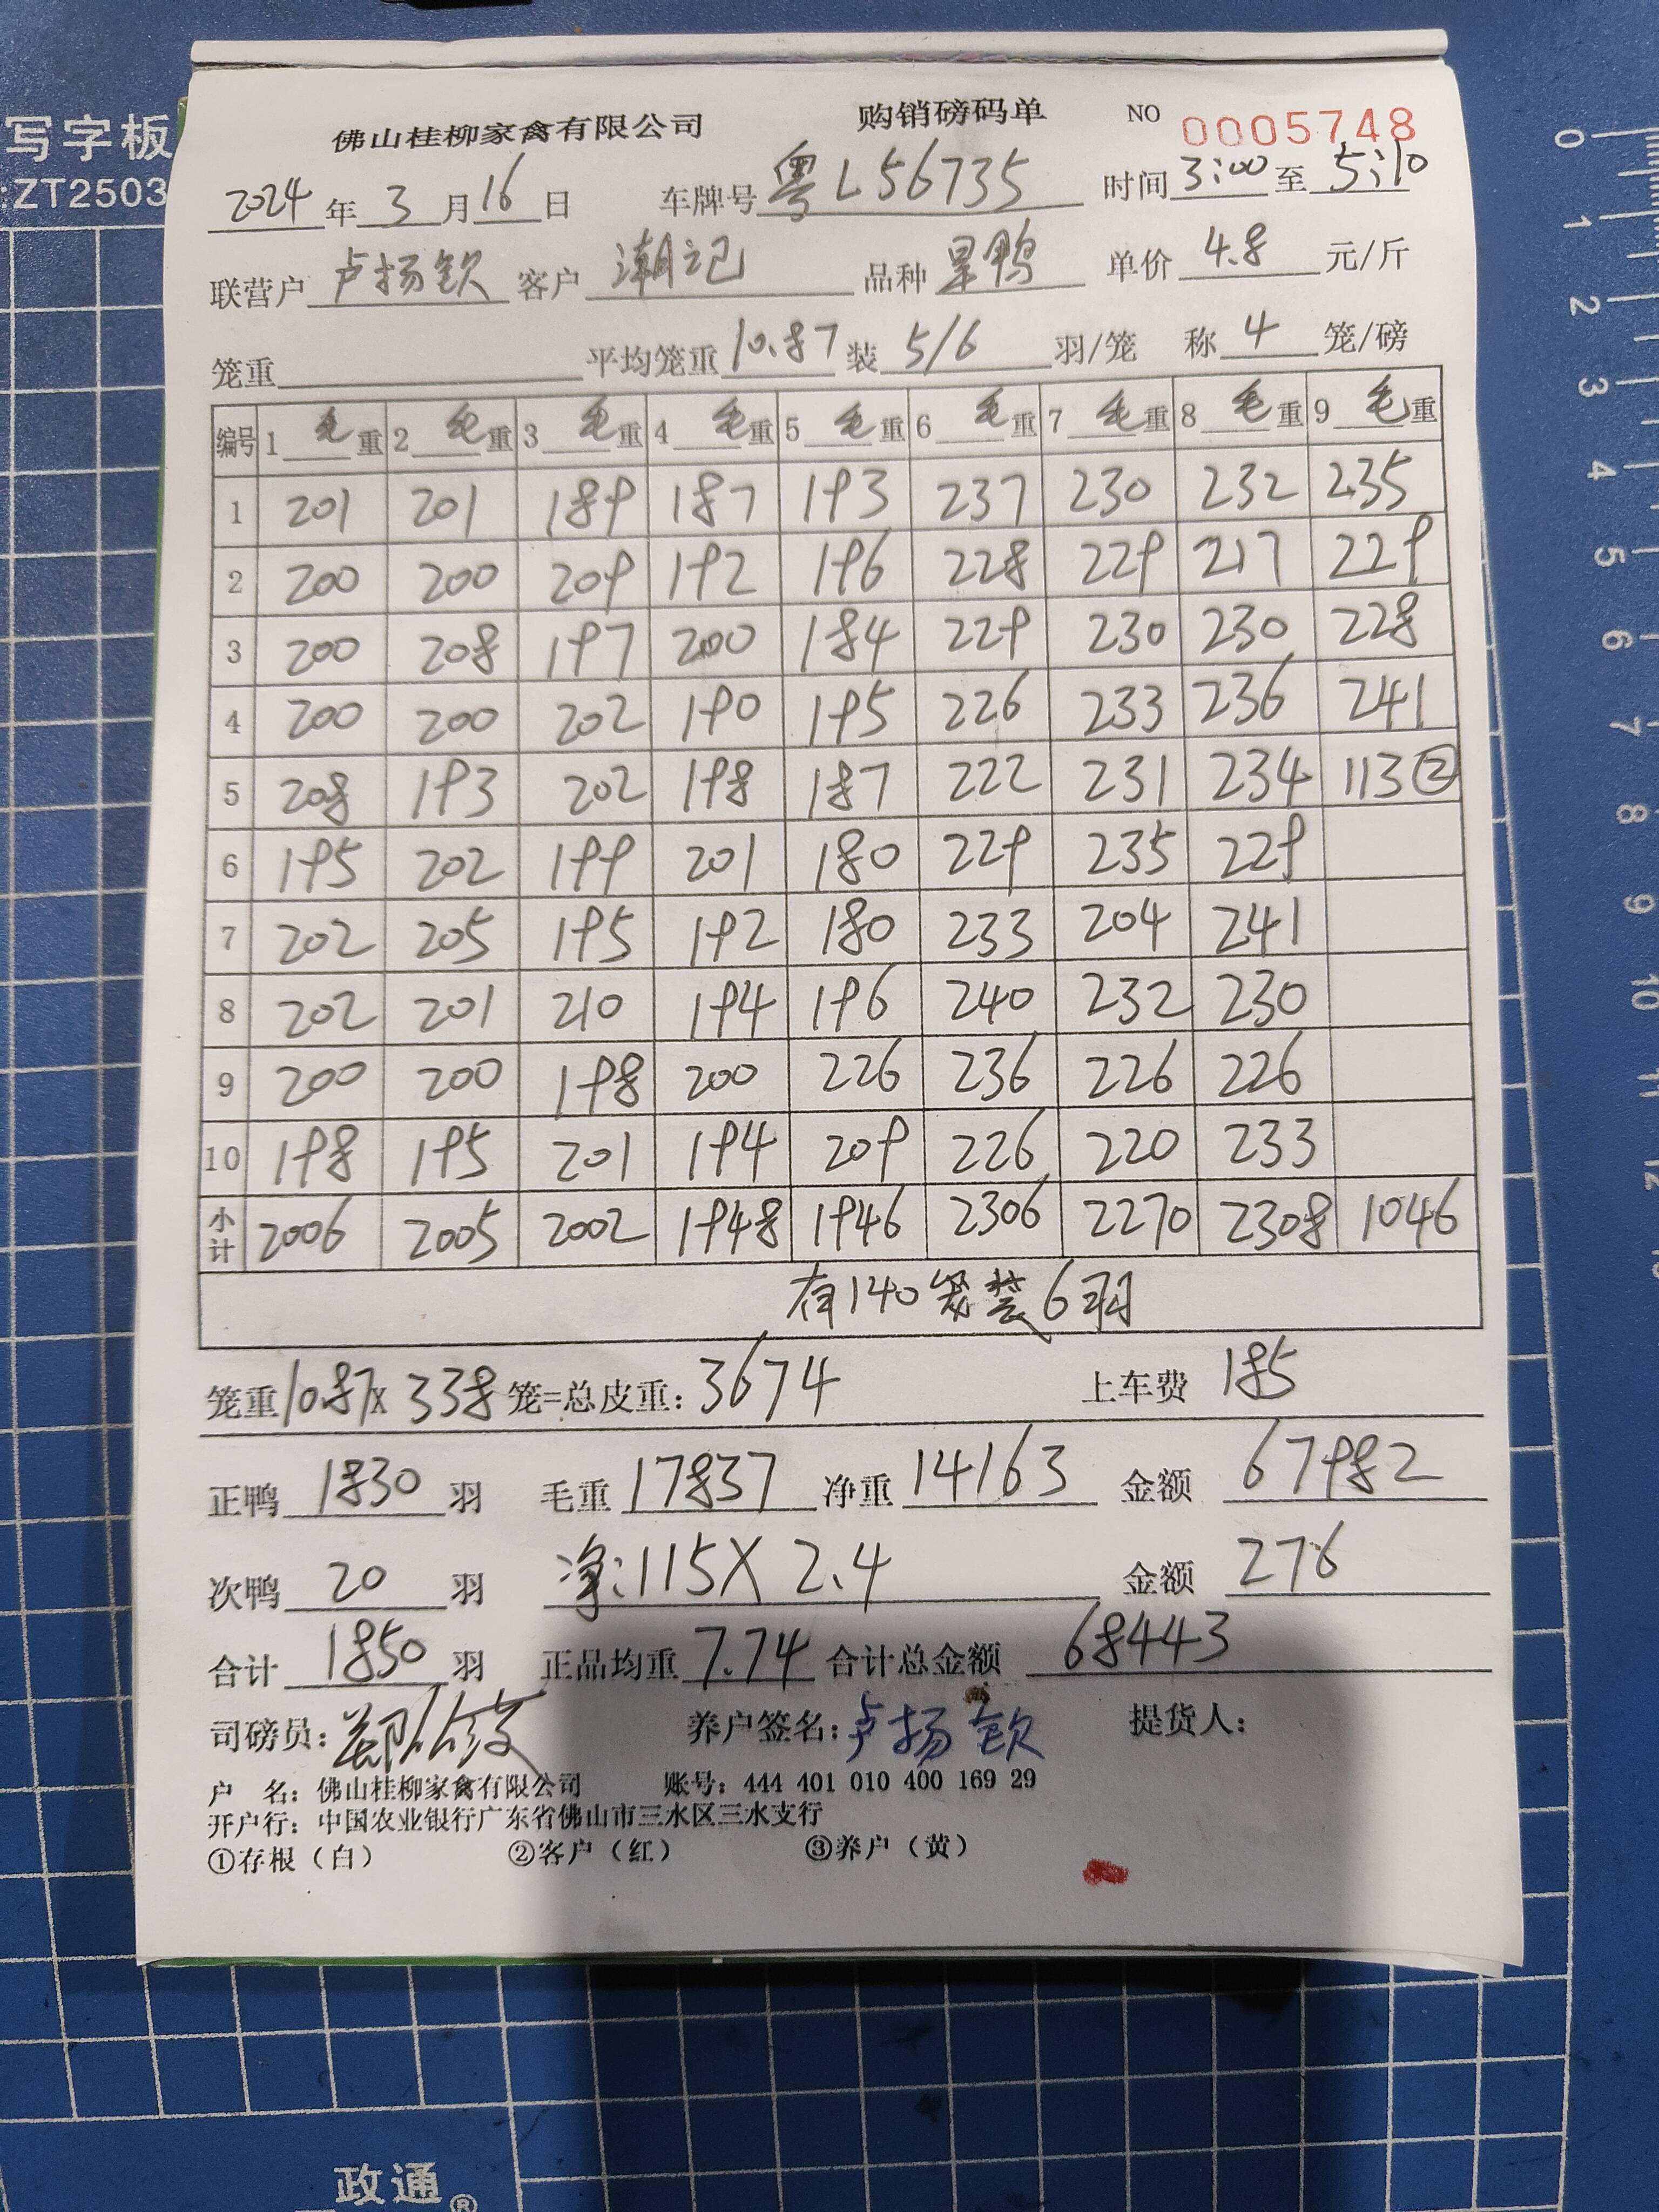 写字板
:ZT2503
佛山桂柳家禽有限公司 购销磅码单 NO 0005748
2024年3月16日 车牌号粤L56735 时间3:00至5:10
联营户卢扬钦 客户潮记 品种旱鸭 单价4.8元/斤
笼重 平均笼重10.87装5/6羽/笼 称4笼/磅
编号 1毛重 2毛重 3毛重 4毛重 5毛重 6毛重 7毛重 8毛重 9毛重
1 201 201 189 187 193 237 230 232 235
2 200 200 209 192 196 228 229 217 229
3 200 208 197 200 184 229 230 230 228
4 200 200 202 190 195 226 233 236 241
5 208 193 202 198 187 222 231 234 113②
6 195 202 199 201 180 229 235 229
7 202 205 195 192 180 233 204 241
8 202 201 210 194 196 240 232 230
9 200 200 198 200 226 236 226 226
10 198 195 201 194 209 226 220 233
小计 2006 2005 2002 1948 1946 2306 2270 2308 1046
有140笼装6羽
笼重10.87x338笼=总皮重:3674 上车费185
正鸭1830羽 毛重17837净重14163 金额67982
次鸭20羽 净:115X2.4 金额276
合计1850羽 正品均重7.74合计总金额68443
司磅员: 养户签名:卢扬钦 提货人:
户 名:佛山桂柳家禽有限公司 账号:444 401 010 400 169 29
开户行:中国农业银行广东省佛山市三水区三水支行
①存根(白) ②客户(红) ③养户(黄)
0
1
2
3
4
5
6
7
8
9
10
11
12
政通®